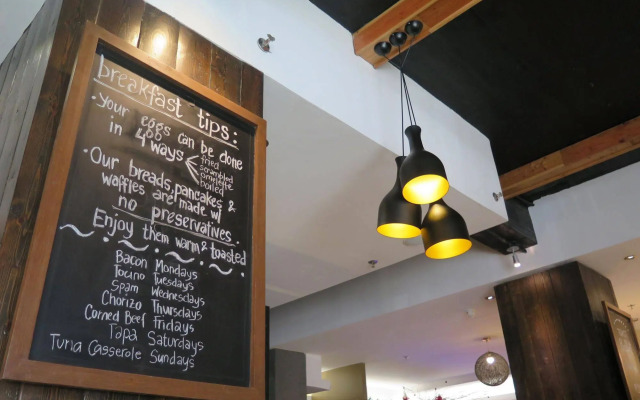 breakfast tips:
• Your eggs can be done
in 4 ways
fried
scrambled
omelette
boiled
• Our breads, pancakes &
waffles are made w/
no preservatives.
Enjoy them warm & toasted
Bacon Mondays
Tocino Tuesdays
Spam Wednesdays
Chorizo Thursdays
Corned Beef Fridays
Tapa Saturdays
Tuna Casserole Sundays